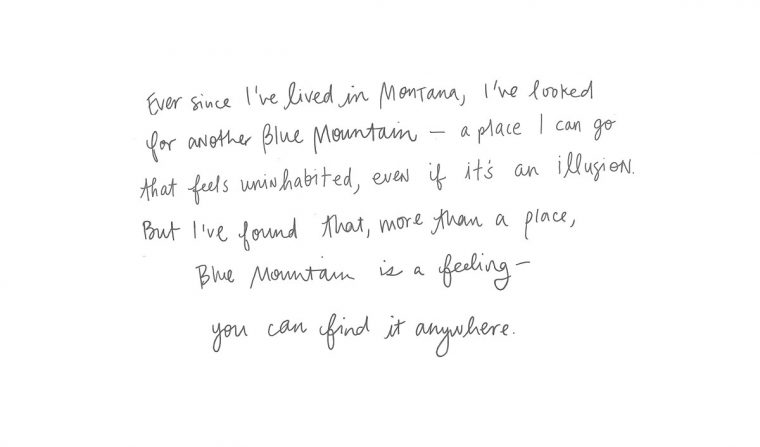 Ever since I've lived in Montana, I've looked
for another Blue Mountain – a place I can go
that feels uninhabited, even if it's an illusion.
But I've found that, more than a place,
Blue Mountain is a feeling –
you can find it anywhere.